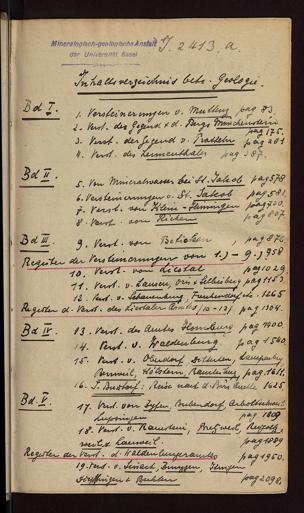 Mineralogisch-geologische Anstalt
der Universität Basel
J. 2413. a.
Inhaltsverzeichnis betr. Geologie.
Bd I. 1. Versteinerungen v. Muttenz pag 73.
2. Verst. der Gegend & d. Bergs Münchenstein
pag 175.
3. Verst. der Gegend v. Pratteln pag 201
4. Verst. des pag 287.
Bd II. 5. Von Mineralwasser bei St. Jakob pag 578
6. Versteinerungen v. St. Jakob pag 581.
7. Verst. von Klein-Hüningen pag 700.
8. Verst. von Riehen pag 807.
Bd III 9. Verst. von Betticken, pag 876
Register der Versteinerungen von 1.) - 9.) 958
10. Verst. von Liestal pag 1029
11. Verst. v. Lausen, pag 1153.
12. Verst. v. Schauenburg, Frenkendorf etc. 1265
Register d. Verst. des Liestaler Amtes (10-13) pag 1304.
Bd IV. 13. Verst. des Amtes Homburg pag 1400.
14. Verst. v. Waldenburg pag 1540.
15. Verst. v. Oberdorf, Langenbruck,
Bennwil, Hölstein, Ramlinsburg pag 1611.
16. J. Bruckner: Reise nach d. Birs 1625
Bd. V. 17. Verst. von Zyfen, Bubendorf, Arboltschwil
Lupsingen pag 1809
18. Verst. v. Ramstein, Bretzwil, Reigoldswil
& Lauwil. pag 1889
Register der Verst. d. Waldenburgeramtes pag 1950.
19. Verst. v. Sissach, Zunzgen, Itingen
& Böckten pag 2098.